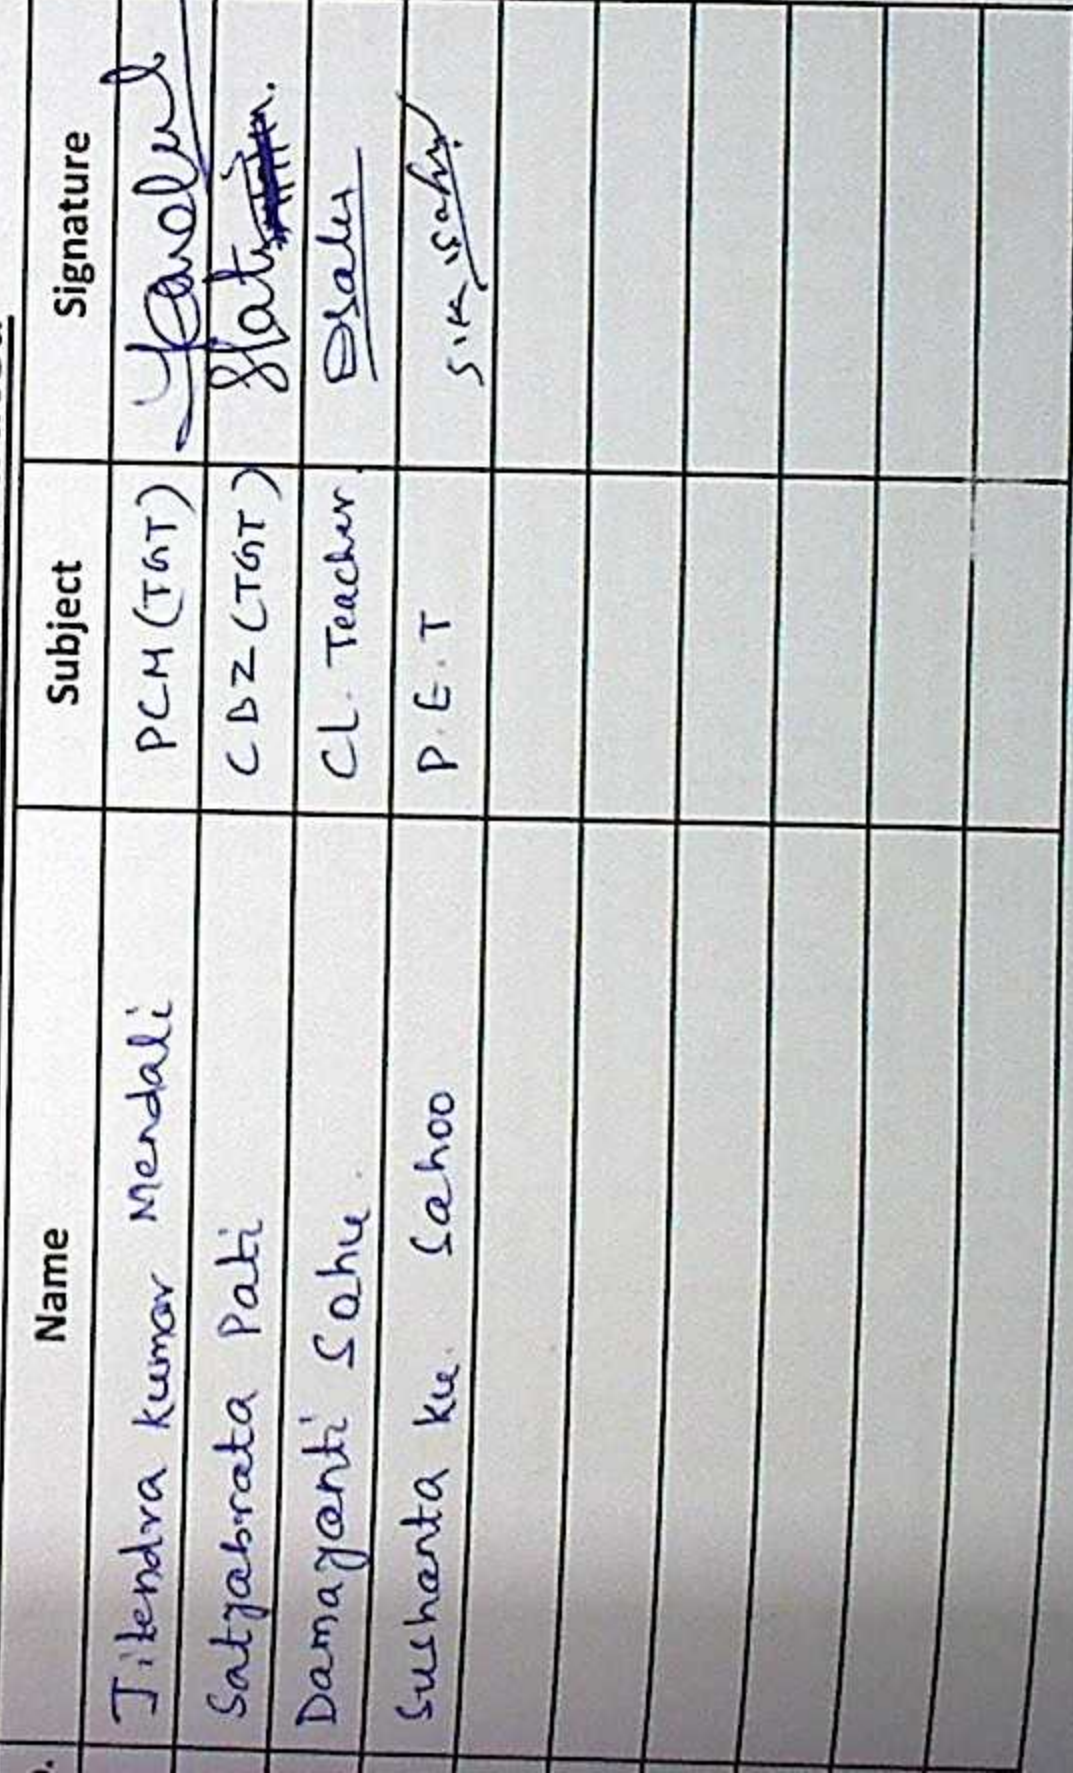 Name Subject Signature
Jitendra Kumar Mendali PCM (TGT)
Satyabrata Pati CBZ (TGT)
Damayanti Sahu. Cl. Teacher. DSahu
Sushanta Ku. Sahoo P.E.T S.K.Sahoo